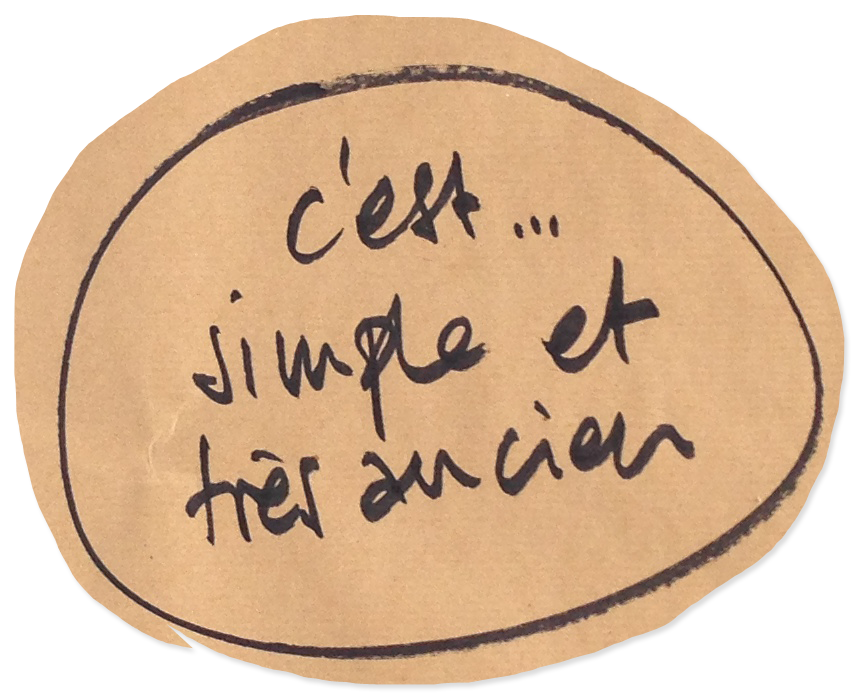 c'est...
simple et
très ancien